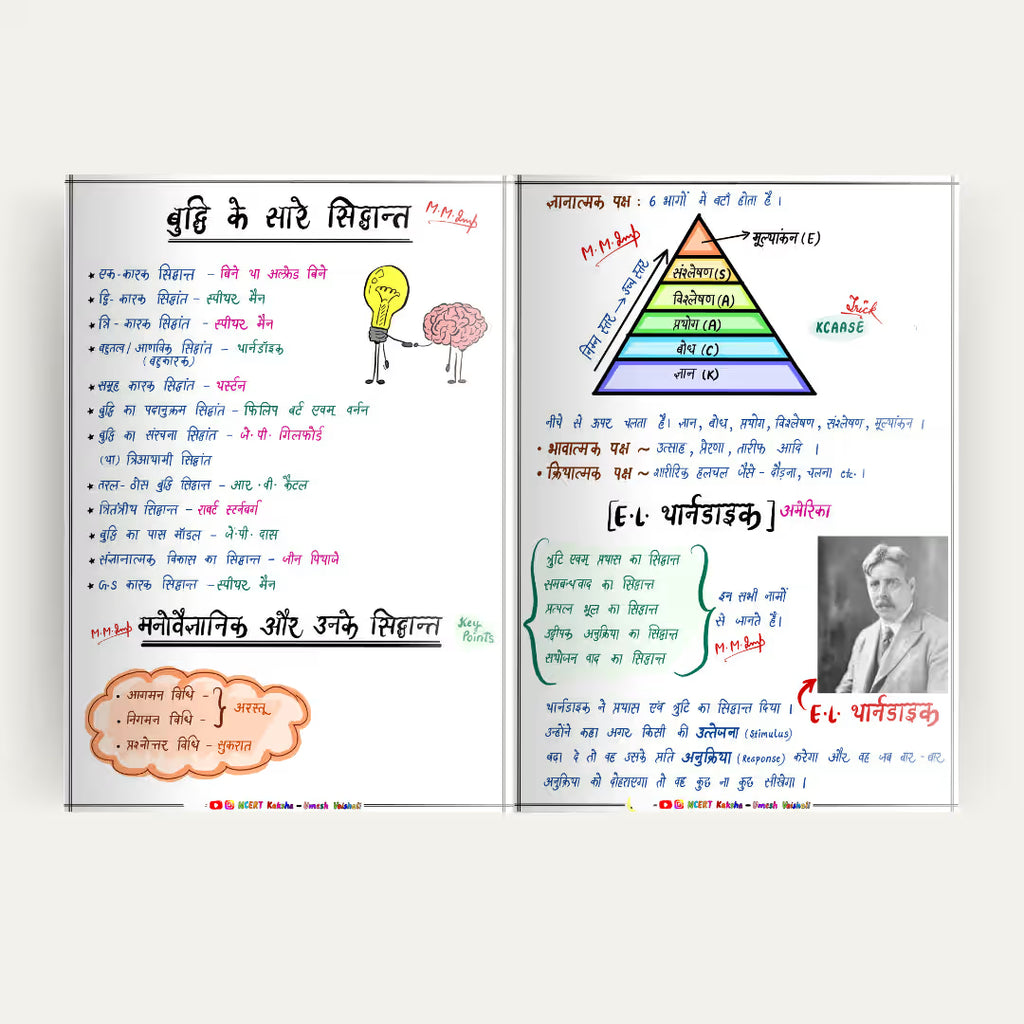 बुद्धि के सारे सिद्धान्त
M.M.Imp
★ एक-कारक सिद्धान्त - बिने या अल्फ्रेड बिने
★ द्वि-कारक सिद्धांत - स्पीयर मैन
★ त्रि-कारक सिद्धांत - स्पीयर मैन
★ बहुतत्व/आणविक सिद्धांत - थार्नडॉइक
(बहुकारक)
★ समूह कारक सिद्धांत - थर्स्टन
★ बुद्धि का पदानुक्रम सिद्धांत - फिलिप बर्ट एवम् वर्नन
★ बुद्धि का संरचना सिद्धांत - जे.पी. गिलफोर्ड
(या) त्रिआयामी सिद्धांत
★ तरल-ठोस बुद्धि सिद्धान्त - आर.बी. कैटल
★ त्रितंत्रीय सिद्धान्त - राबर्ट स्टर्नबर्ग
★ बुद्धि का पास मॉडल - जे.पी. दास
★ संज्ञानात्मक विकास का सिद्धान्त - जीन पियाजे
★ G.S कारक सिद्धान्त - स्पीयर मैन
M.M.Imp मनोवैज्ञानिक और उनके सिद्धान्त Key Points
• आगमन विधि -
• निगमन विधि - } अरस्तू
• प्रश्नोत्तर विधि - सुकरात
NCERT Kaksha - Umesh Vaishali
ज्ञानात्मक पक्ष : 6 भागों में बटाँ होता है।
M.M.Imp
मूल्यांकन (E)
संश्लेषण (S)
विश्लेषण (A)
प्रयोग (A)
बोध (C)
ज्ञान (K)
निम्न स्तर → उच्च स्तर
Trick
KCAASE
नीचे से ऊपर चलता है। ज्ञान, बोध, प्रयोग, विश्लेषण, संश्लेषण, मूल्यांकन।
• भावात्मक पक्ष ~ उत्साह, प्रेरणा, तारीफ आदि।
• क्रियात्मक पक्ष ~ शारीरिक हलचल जैसे - दौड़ना, चलना etc.।
[E.L. थार्नडाइक] अमेरिका
त्रुटि एवम् प्रयास का सिद्धान्त
समबन्धवाद का सिद्धान्त
प्रत्यत्न भूल का सिद्धान्त
उद्दीपक अनुक्रिया का सिद्धान्त
सयोजन वाद का सिद्धान्त
इन सभी नामों
से जानते है।
M.M.Imp
थार्नडाइक ने प्रयास एवं त्रुटि का सिद्धान्त दिया।
E.L. थार्नडाइक
उन्होंने कहा अगर किसी की उत्तेजना (Stimulus)
बढ़ा दे तो वह उसके प्रति अनुक्रिया (Response) करेगा और वह जब बार-बार
अनुक्रिया को दोहराएगा तो वह कुछ ना कुछ सीखेगा।
NCERT Kaksha - Umesh Vaishali